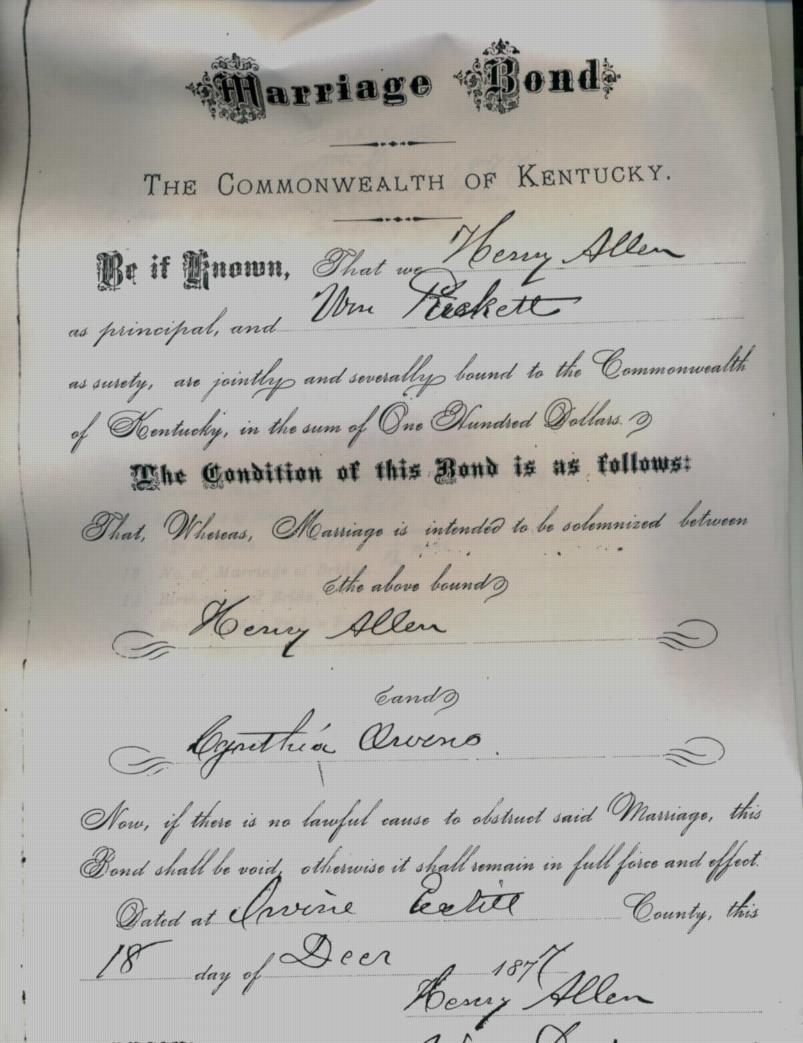 Marriage Bond
THE COMMONWEALTH OF KENTUCKY.
Be it Known, That we Henry Allen
as principal, and Wm
as surety, are jointly and severally bound to the Commonwealth
of Kentucky, in the sum of One Hundred Dollars.
The Condition of this Bond is as follows:
That, Whereas, Marriage is intended to be solemnized between
the above bound
Henry Allen
and
Cynthia
Now, if there is no lawful cause to obstruct said Marriage, this
Bond shall be void, otherwise it shall remain in full force and effect.
Dated at Irvine Estill County, this
18 day of Decr 1877
Henry Allen